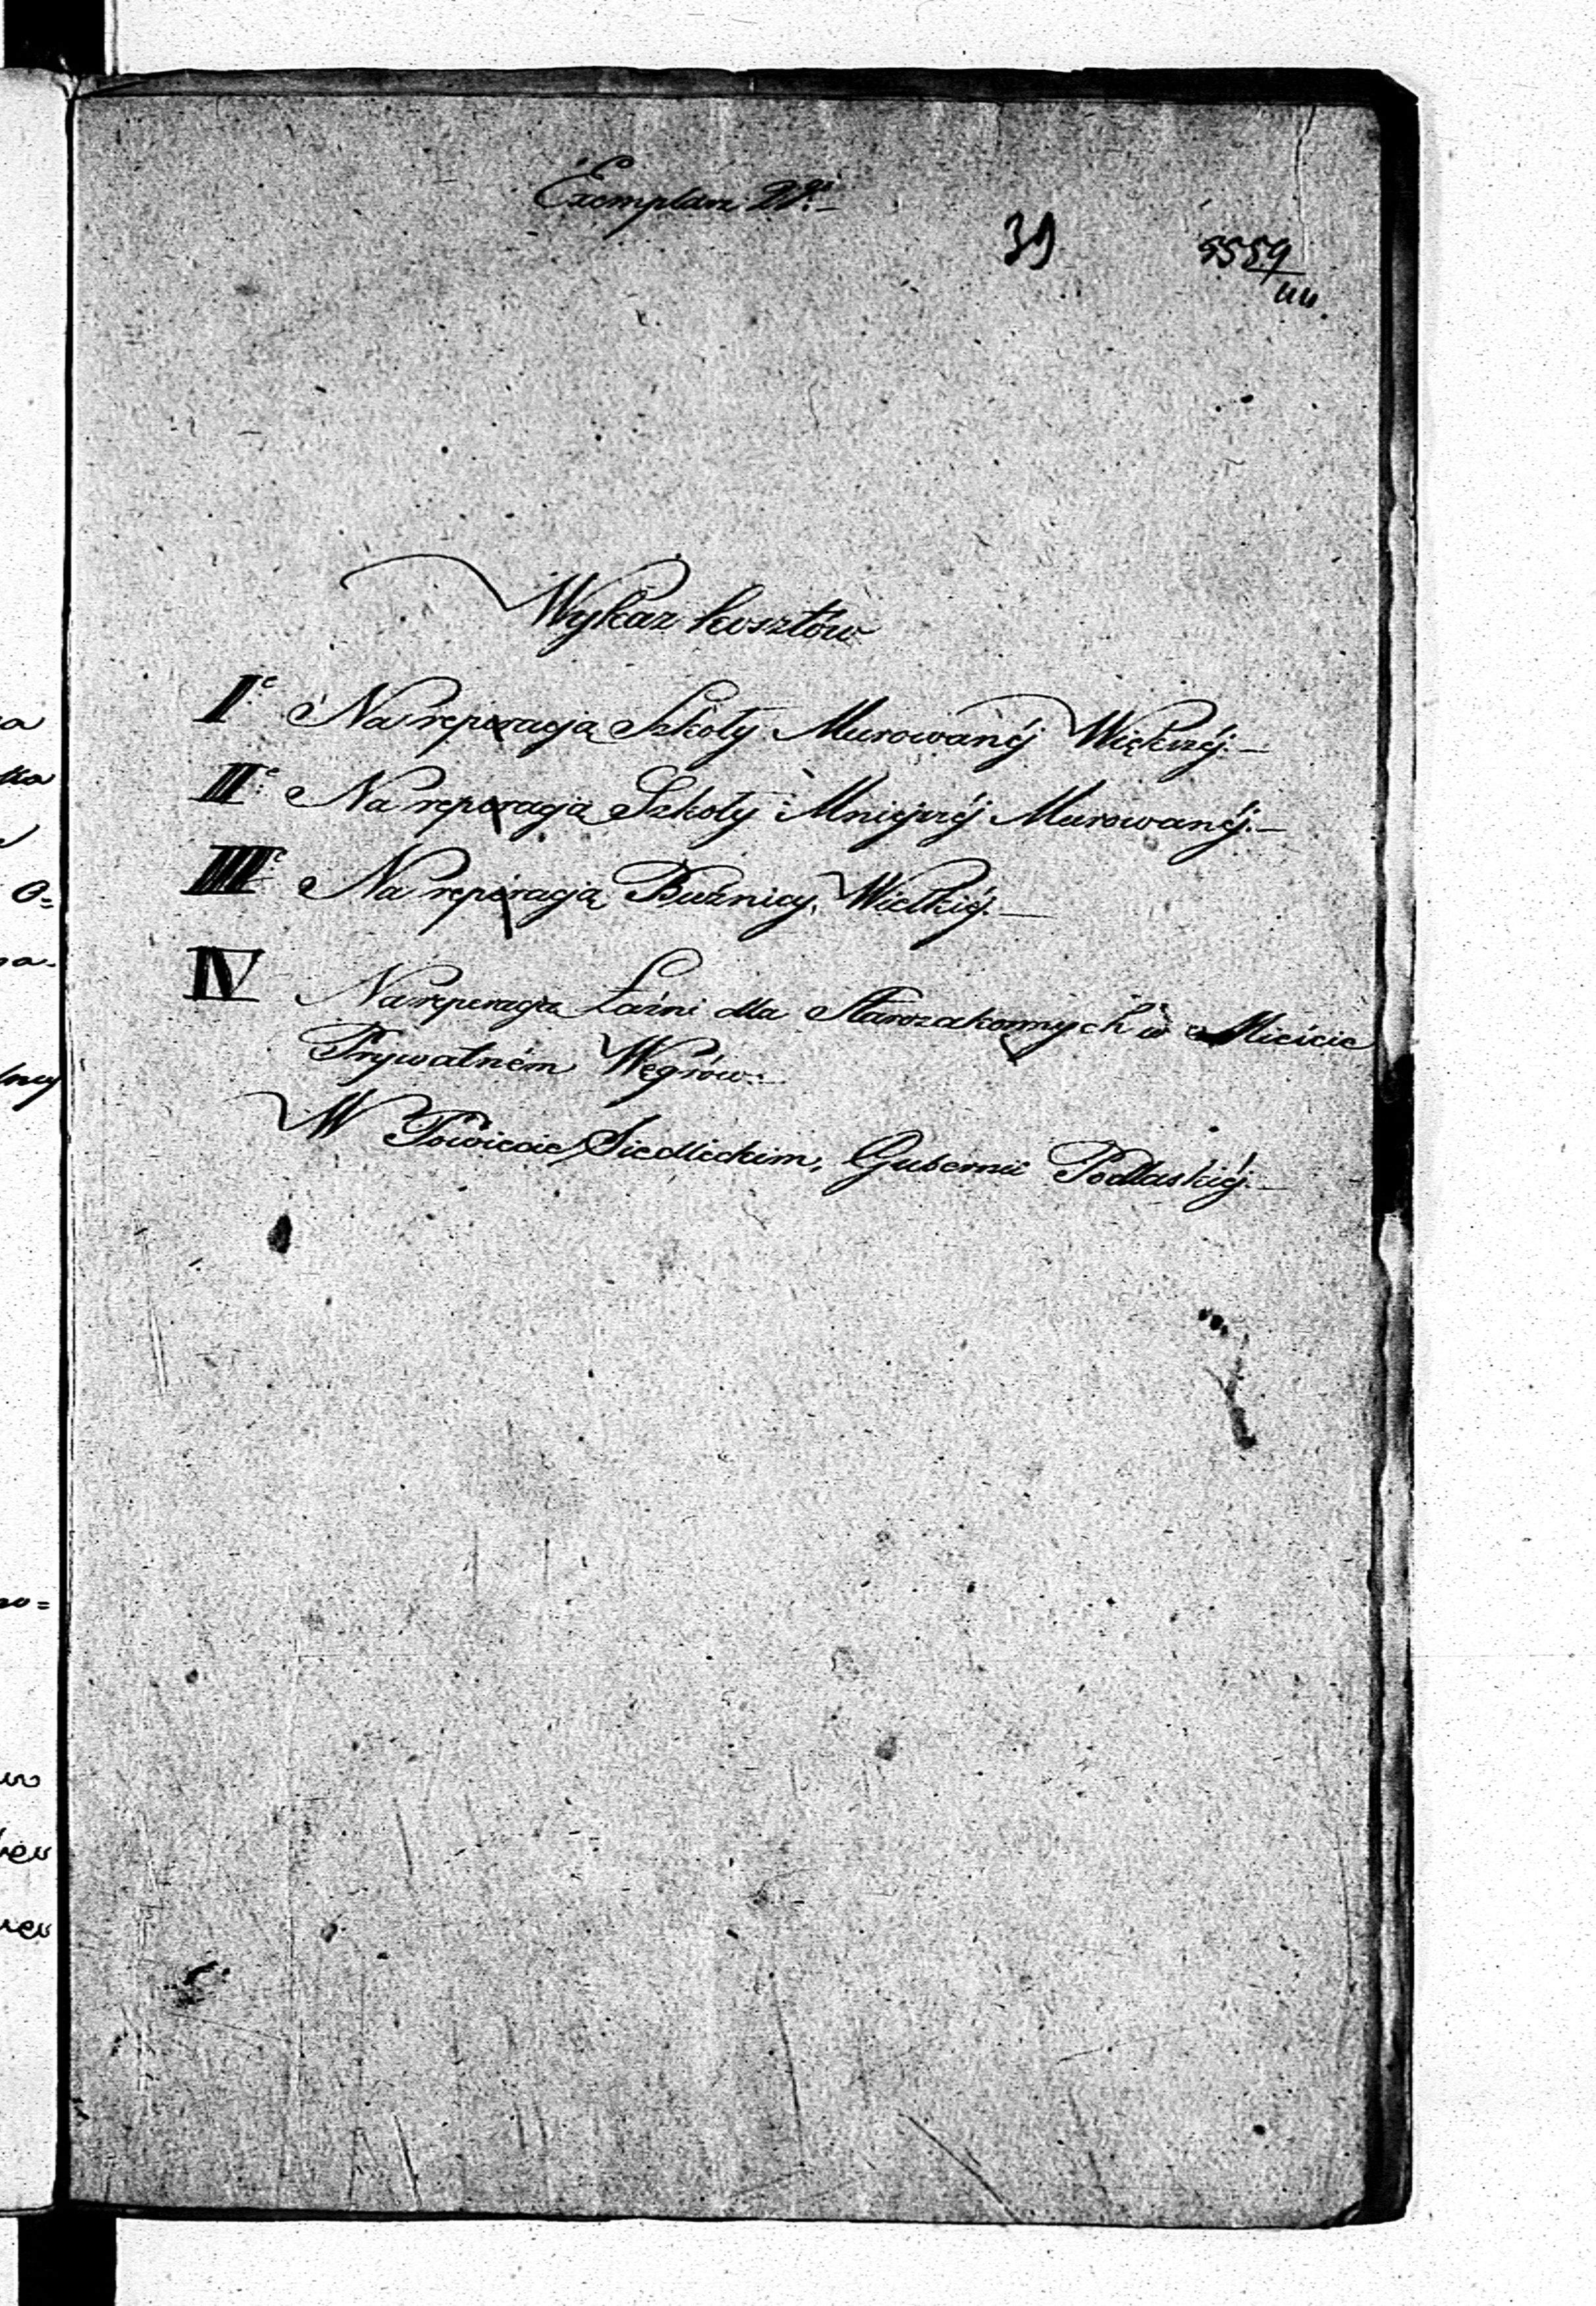 Exemplarz 2gi.
39
5559/44.
Wykaz kosztów
Ie Na reperacją Szkoły Murowanéj Większéj.—
IIe Na reperacją Szkoły Mniejszéj Murowanéj.—
IIIe Na reperacją Bużnicy, Wielkiéj.—
IV Na reperacją Łaźni dla Starozakonnych w Mieście
Prywatném Węgrów.—
W Powiecie Siedleckim, Gubernii Podlaskiéj.—